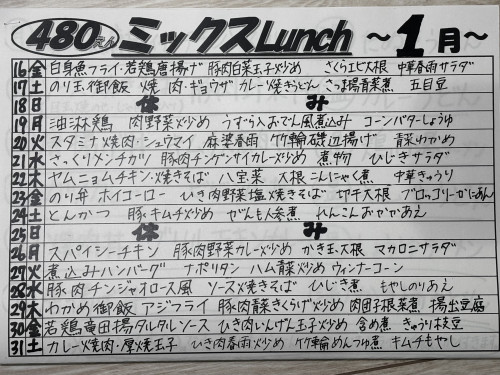 480円 ミックスLunch 〜1月〜
16金 白身魚フライ・若鶏唐揚げ 豚肉白菜玉子炒め さくらエビ大根 中華春雨サラダ
17土 のり玉御飯 焼肉・ギョウザ カレー焼きうどん さつま揚青菜煮 五目豆
18日 休み
19月 油淋鶏 肉野菜炒め うずら入おでん風煮込み コーンバターしょうゆ
20火 スタミナ焼肉・シュウマイ 麻婆春雨 竹輪磯辺揚げ 青菜わかめ
21水 さっくりメンチカツ 豚肉チンゲンサイカレー炒め 煮物 ひじきサラダ
22木 ヤムニョムチキン・焼きそば 八宝菜 大根こんにゃく煮 中華きゅうり
23金 のり弁 ホイコーロー ひき肉野菜塩焼きそば 切干大根 ブロッコリーかにあん
24土 とんかつ 豚キムチ炒め ぜんも人参煮 れんこんおかかあえ
25日 休み
26月 スパイシーチキン 豚肉野菜カレー炒め かき玉大根 マカロニサラダ
27火 煮込みハンバーグ ナポリタン ハム青菜炒め ウィンナーコーン
28水 豚肉チンジャオロース風 ソース焼きそば ひじき煮 もやしのりあえ
29木 わかめ御飯 アジフライ 豚肉青菜きくらげ炒め 肉団子根菜煮 揚出豆腐
30金 若鶏竜田揚タルタルソース ひき肉いんげん玉子炒め 含め煮 きゅうり枝豆
31土 カレー焼肉・厚焼玉子 ひき肉春雨炒め 竹輪めんつゆ煮 キムチもやし